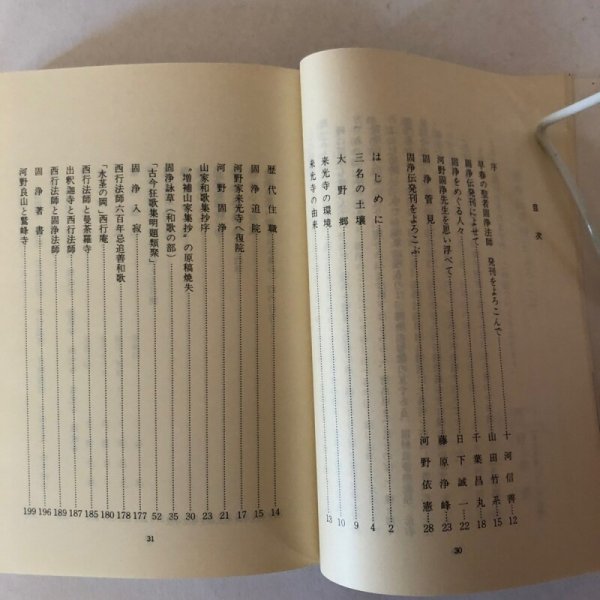 目次
序
早春の聖者固浄法師 発刊をよろこんで……十河信善…12
固浄伝発刊によせて……山田竹系…15
固浄をめぐる人々……千葉昌丸…18
河野固浄先生を思い浮べて……日下誠一…22
固浄管見……藤原浄峰…23
固浄伝発刊をよろこぶ……河野依憲…28
はじめに……2
三名の土壌……4
大野郷……9
来光寺の環境……10
来光寺の由来……13
30
歴代住職……14
固浄追院……15
河野家来光寺へ復院……17
河野固浄……21
山家和歌集抄序……23
〝増補山家集抄〟の原稿焼失……30
固浄詠草(和歌の部)……35
「古今狂歌集明題類聚」……52
固浄入寂……177
西行法師六百年忌追善和歌……178
「水茎の岡」西行庵……180
西行法師と曼荼羅寺……185
出釈迦寺と西行法師……187
西行法師と固浄法師……189
固浄著書……196
河野良山と鷲峰寺……199
31